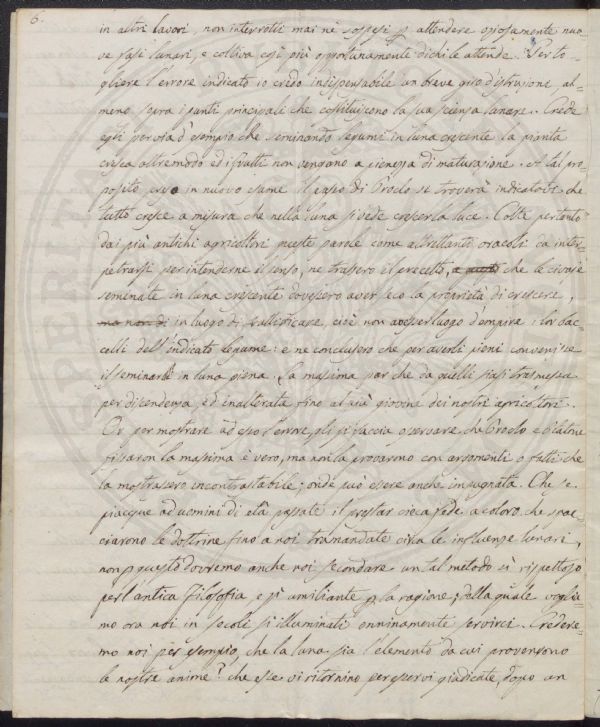 6.
in altri lavori, non interrotti mai nè sospesi p attendere oziosamente nuo-
ve fasi lunari, e coltiva così più opportunamente di chi le attende. Per to-
gliere l'errore indicato io credo indispensabile un breve giro d'istruzione, al-
meno sopra i punti principali che costituiscono la sua scienza lunare. Crede
egli per via d'esempio che seminando legumi in luna crescente la pianta
cresca oltremodo ed i frutti non vengano a pienezza di maturazione. A tal pro-
posito in nuovo esame il caso di Proclo si troverà indicato che
tutto cresce a misura che nella luna si vede crescer la luce. Colte pertanto
dai più antichi agricoltori queste parole come altrettanti oracoli da inter-
petrarsi per intenderne il senso, ne trassero il precetto, che le civaie
seminate in luna crescente dovessero aver seco la proprietà di crescere,
ma non di in luogo di fruttificare, cioè non aver luogo d'empire i lor bac-
celli dell'indicato legume: e ne conclusero che per averli pieni convenisse
il seminarli in luna piena. La massima par che da quelli siasi trasmessa
per discendenza, ed inalterata fino al più giovane dei nostri agricoltori.
Or per mostrare ad esso l'errore, gli si faccia osservare che Proclo e
fissaron la massima è vero, ma non la provarono con argomenti o fatti che
la mostrassero incontrastabile; onde può essere anche impugnata. Che se
piacque ad uomini di età passate il prestar cieca fede a coloro che spac-
ciarono le dottrine fino a noi tramandate circa le influenze lunari,
non p questo dovremo anche noi secondare un tal metodo sì rispettoso
per l'antica filosofia e sì umiliante p la ragione, della quale voglia-
mo ora noi in secoli sì illuminati onninamente servirci. Credere-
mo noi per esempio, che la luna sia l'elemento da cui provengono
le nostre anime? che esse vi ritornino per esservi giudicate, dopo un